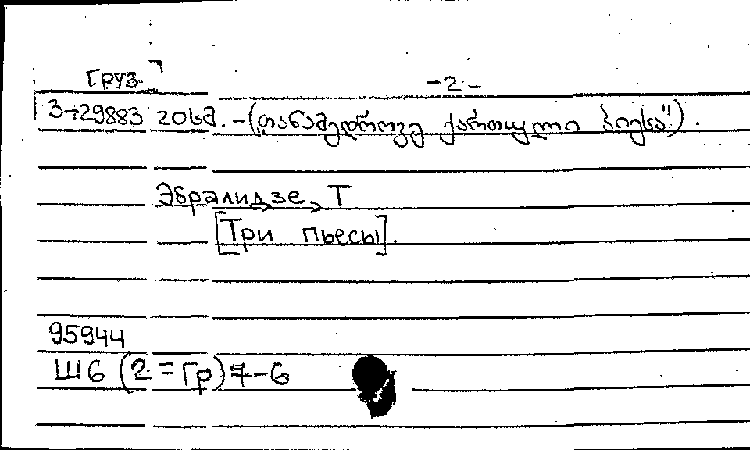 Груз.
-2-
3-29883 20სმ. -(თანამედროვე ქართული პიესა").
Эбралидзе, Т
[Три пьесы].
95944
Ш6 (2=Гр)7-6